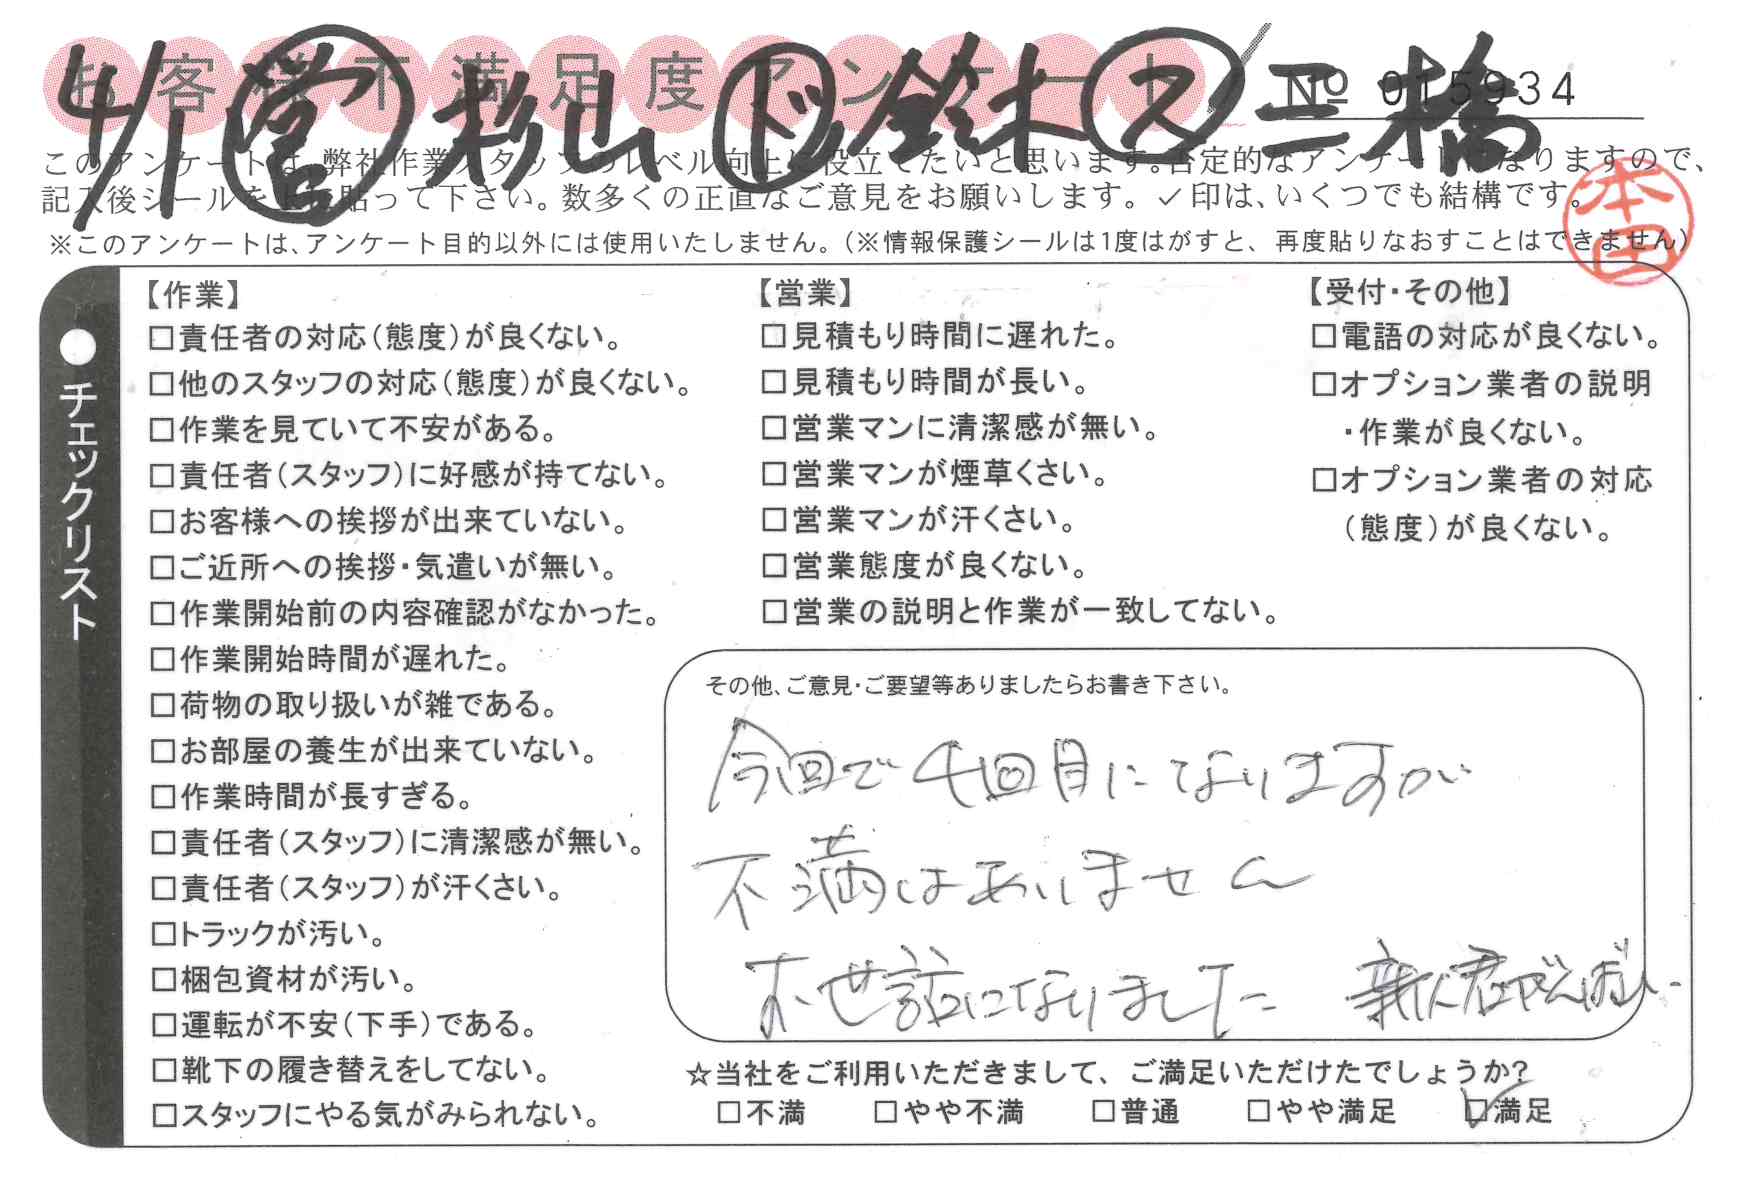 お客様不満足度アンケート
№ 015934
4/1 営 杉山 ド 鈴木 ス 三橋
このアンケートは、弊社作業スタッフのレベル向上に役立てたいと思います。否定的なアンケートになりますので、
記入後シールを上に貼って下さい。数多くの正直なご意見をお願いします。✓印は、いくつでも結構です。
※このアンケートは、アンケート目的以外には使用いたしません。(※情報保護シールは1度はがすと、再度貼りなおすことはできません)
本田
●チェックリスト
【作業】
□責任者の対応(態度)が良くない。
□他のスタッフの対応(態度)が良くない。
□作業を見ていて不安がある。
□責任者(スタッフ)に好感が持てない。
□お客様への挨拶が出来ていない。
□ご近所への挨拶・気遣いが無い。
□作業開始前の内容確認がなかった。
□作業開始時間が遅れた。
□荷物の取り扱いが雑である。
□お部屋の養生が出来ていない。
□作業時間が長すぎる。
□責任者(スタッフ)に清潔感が無い。
□責任者(スタッフ)が汗くさい。
□トラックが汚い。
□梱包資材が汚い。
□運転が不安(下手)である。
□靴下の履き替えをしてない。
□スタッフにやる気がみられない。
【営業】
□見積もり時間に遅れた。
□見積もり時間が長い。
□営業マンに清潔感が無い。
□営業マンが煙草くさい。
□営業マンが汗くさい。
□営業態度が良くない。
□営業の説明と作業が一致してない。
【受付・その他】
□電語の対応が良くない。
□オプション業者の説明
・作業が良くない。
□オプション業者の対応
(態度)が良くない。
その他、ご意見・ご要望等ありましたらお書き下さい。
今回で4回目になりますが
不満はありません
お世話になりました 新人君がんばれー
☆当社をご利用いただきまして、ご満足いただけたでしょうか?
□不満 □やや不満 □普通 □やや満足 ☑満足